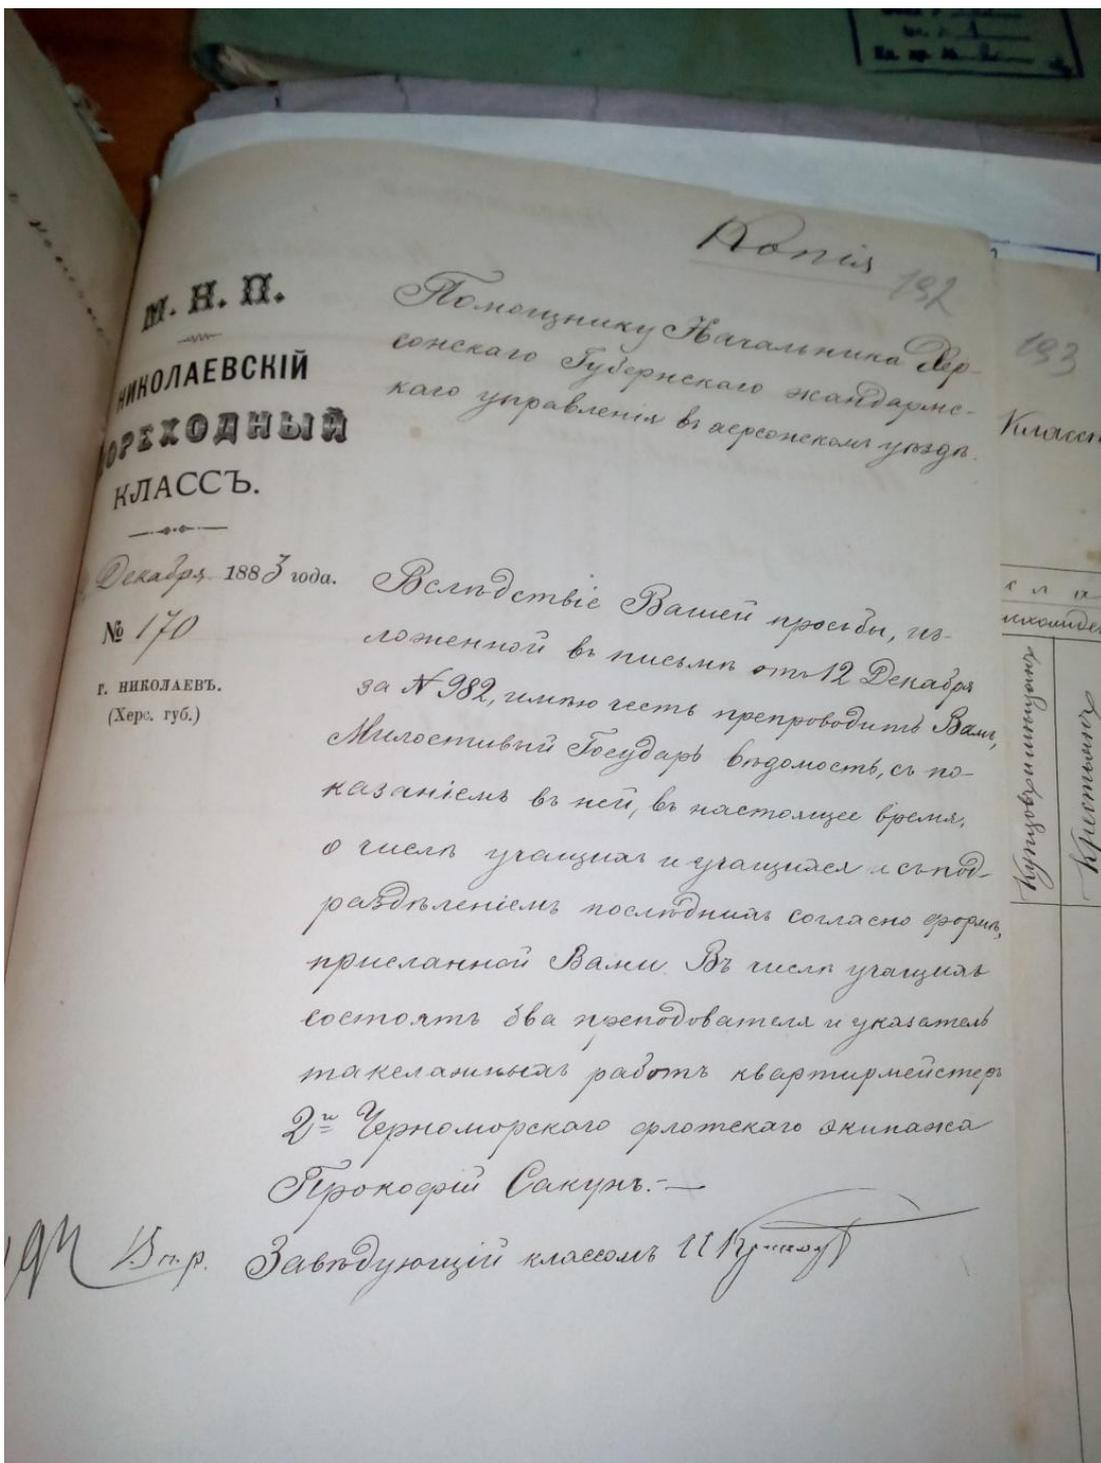 Копія
192
М. Н. П.
НИКОЛАЕВСКІЙ
ОРЕХОДНЫЙ
КЛАССЪ.
Декабря 1883 года.
№ 170
г. НИКОЛАЕВЪ.
(Херс. губ.)
Помощнику Начальника Хер-
сонскаго Губернскаго жандармс-
каго управленія въ херсонскомъ уѣздѣ.
Вслѣдствіе Вашей просьбы, из-
ложенной въ письмѣ отъ 12 Декабря
за № 982, имѣю честь препроводить Вамъ,
Милостивый Государь вѣдомость, съ по-
казаніемъ въ ней, въ настоящее время,
о числѣ учащихъ и учащихся и съ под-
раздѣленіемъ послѣднихъ согласно формѣ,
присланной Вами. Въ числѣ учащихъ
состоятъ два преподователя и указатель
такелажныхъ работъ квартирмейстеръ
2го Черноморскаго флотскаго экипажа
Прокофій Сакунъ.-—
Завѣдующій классомъ И
193
Класс
Купцовъ и мѣщанъ
Крестьянъ